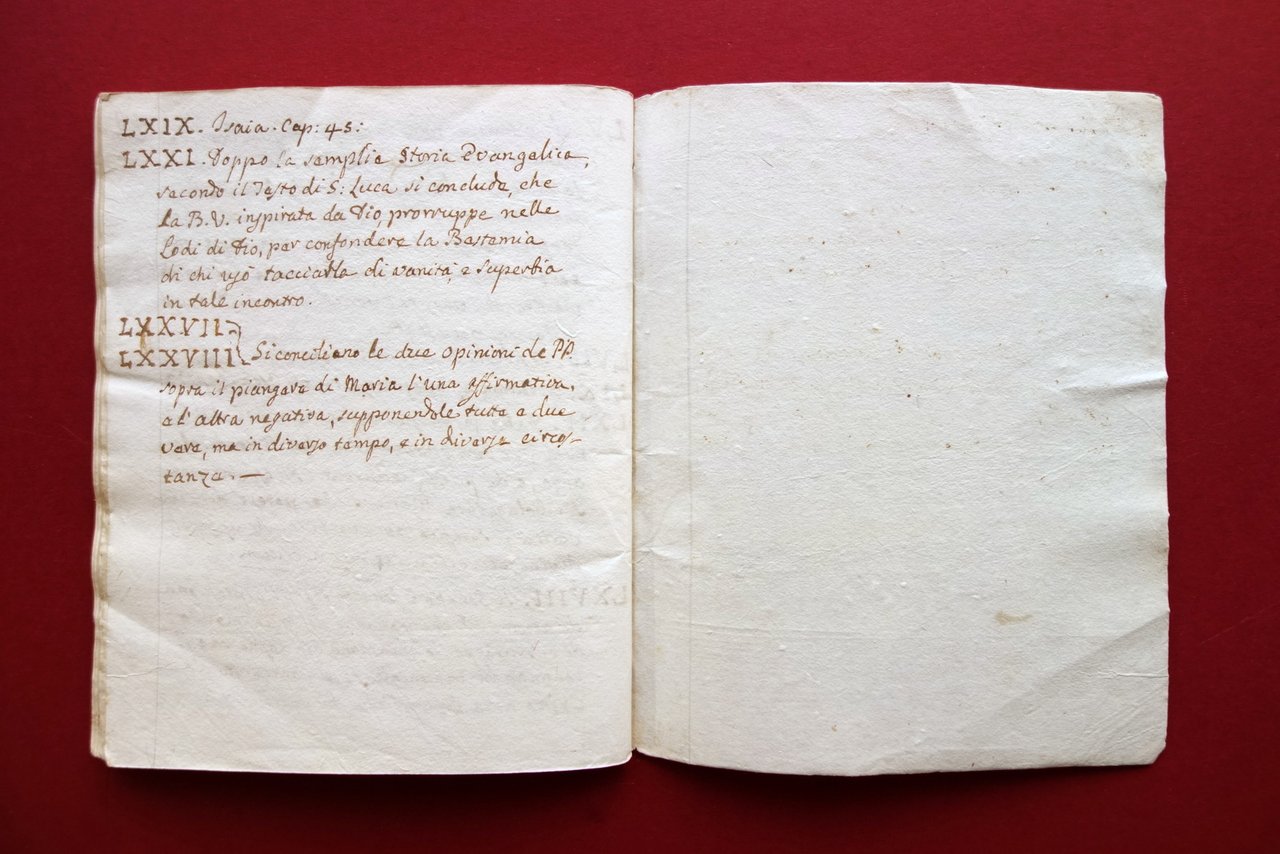 LXIX. Isaia. Cap: 45:
LXXI. Doppo la semplie Storia Evangelica,
secondo il Testo di S: Luca si conclude, che
la B. V. inspirata da Dio, prorruppe nelle
Lodi di Dio, per confondere la Bestemia
di chi usò tacciarla di vanità, e superbia
in tale incontro.
LXXVII
LXXVIII Si conciliano le due opinioni de PP.
sopra il piangere di Maria l'una affirmativa,
e l'altra negativa, supponendole tutte e due
vere, ma in diverso tempo, e in diverse circos-
tanze. —